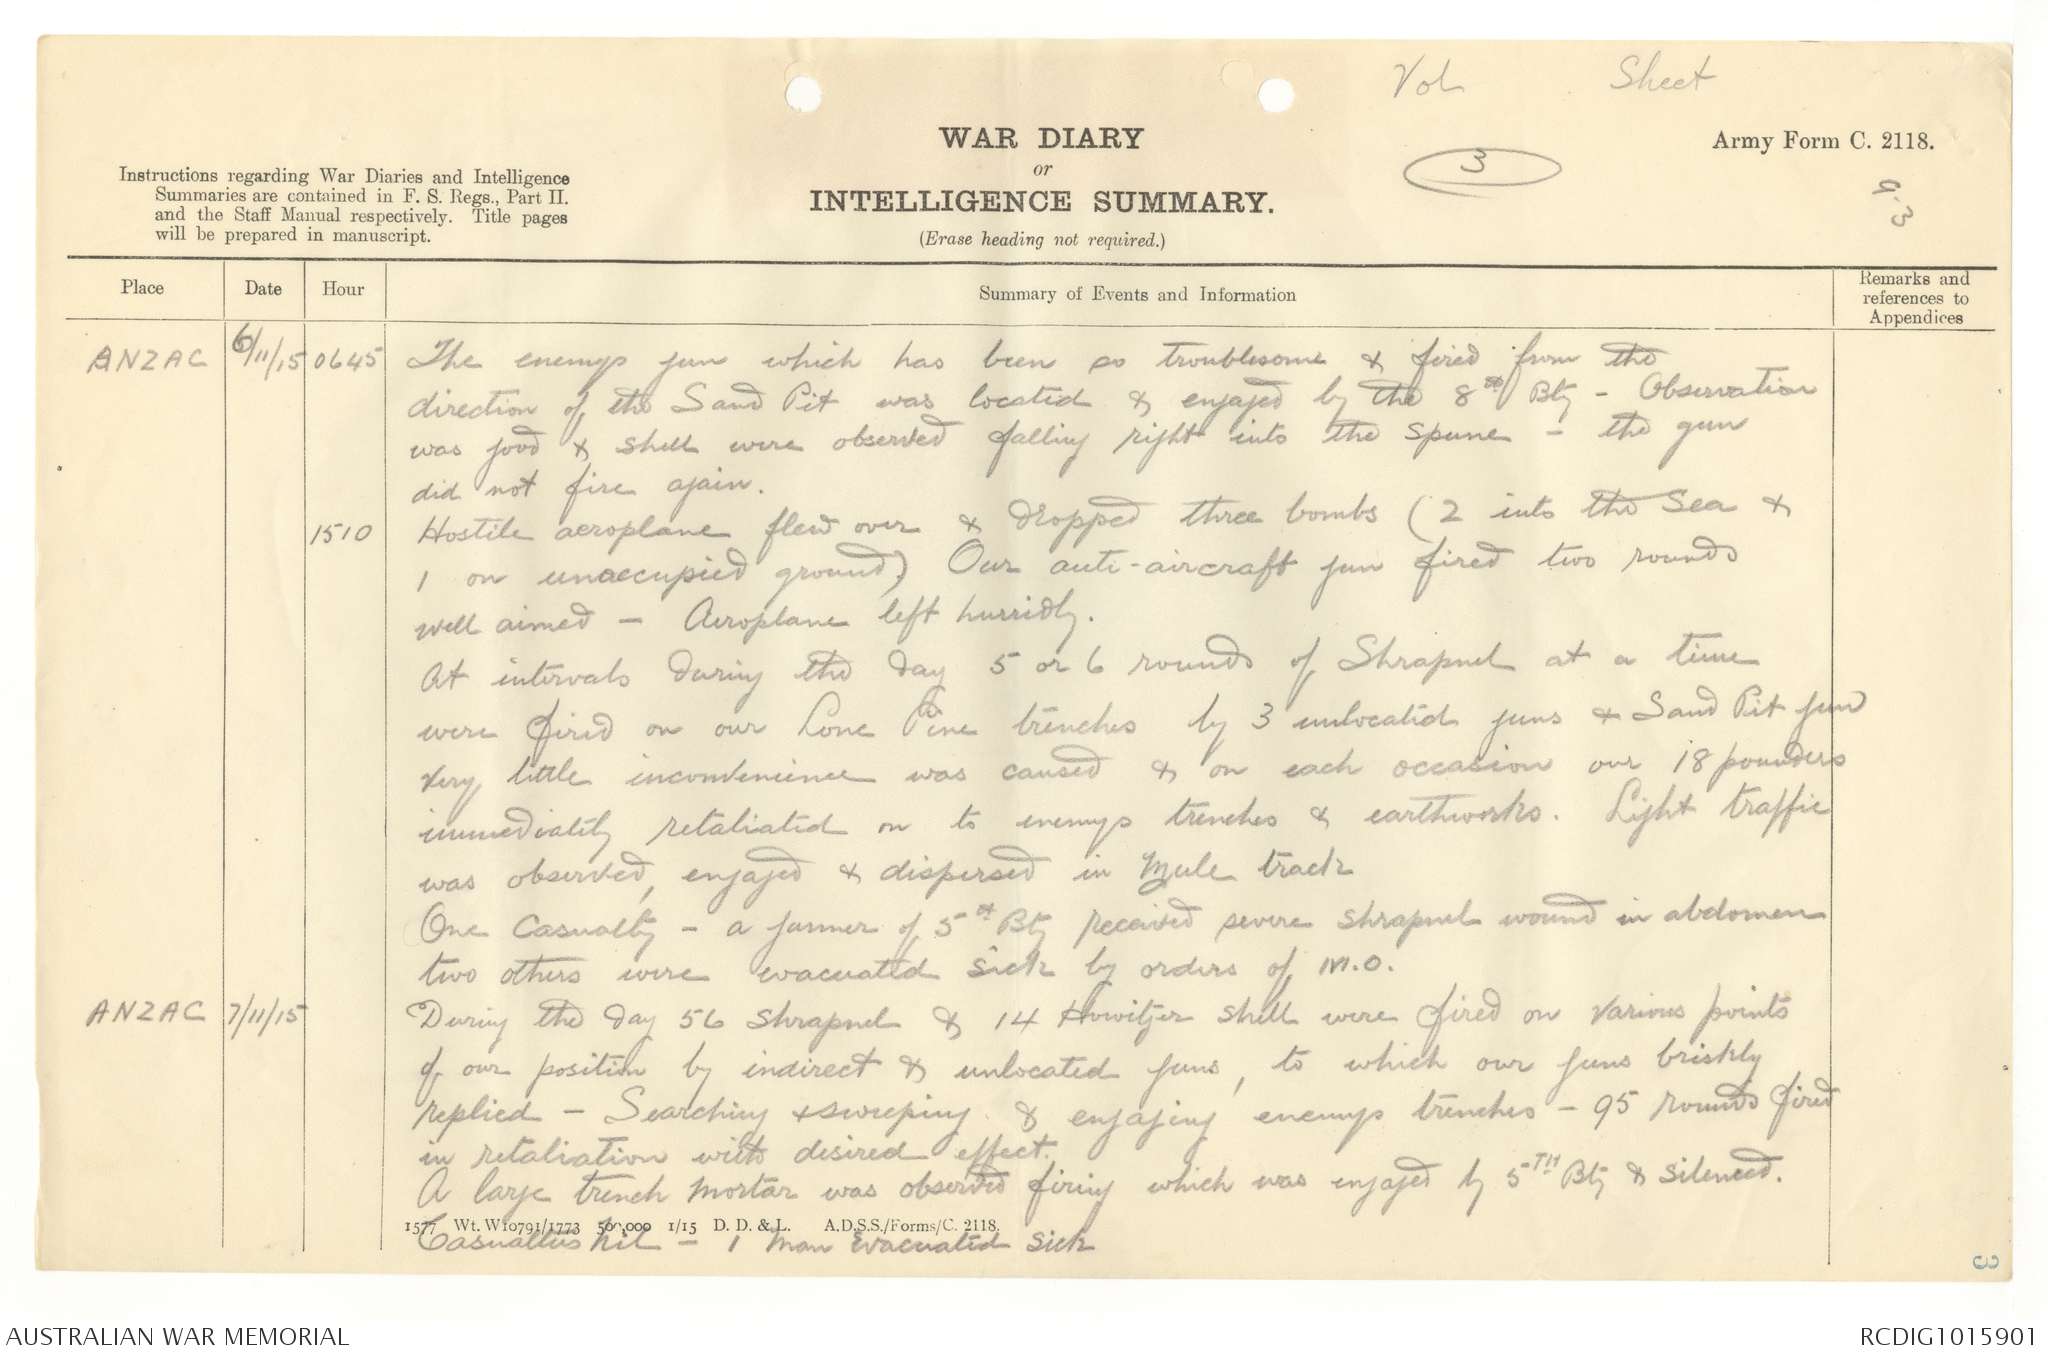 Vol Sheet
WAR DIARY
or
INTELLIGENCE SUMMARY.
(Erase heading not required.)
3
Army Form C. 2118.
9.3
Instructions regarding War Diaries and Intelligence
Summaries are contained in F. S. Regs., Part II.
and the Staff Manual respectively. Title pages
will be prepared in manuscript.
Place Date Hour Summary of Events and Information Remarks and
references to
Appendices
ANZAC 6/11/15 0645 The enemys gun which has been so troublesome & fired from the
direction of the Sand Pit was located & engaged by the 8th Bty - Observation
was good & shell were observed falling right into the spume - the gun
did not fire again.
1510 Hostile aeroplane flew over & dropped three bombs (2 into the Sea &
1 on unoccupied ground) Our anti-aircraft gun fired two rounds
well aimed - Aeroplane left hurridly.
At intervals during the day 5 or 6 rounds of Shrapnel at a time
were fired on our Lone Pine trenches by 3 unlocated guns & Sand Pit gun
very little inconvenience was caused & on each occasion our 18 pounders
immediately retaliated on to enemys trenches & earthworks. Light traffic
was observed, engaged & dispersed in Mule track
One Casualty - a gunner of 5th Bty received severe shrapnel wound in abdomen
two others were evacuated sick by orders of M.O.
ANZAC 7/11/15 During the day 56 Shrapnel & 14 Howitzer shell were fired on various points
of our position by indirect & unlocated guns, to which our guns briskly
replied - Searching & sweeping & engaging enemys trenches - 95 rounds fired
in retaliation with desired effect.
A large trench mortar was observed firing which was engaged by 5TH Bty & silenced.
1577 Wt. W10791/1773 500,000 1/15 D. D. & L. A.D.S.S./Forms/C. 2118.
Casualties Nil - 1 man Evacuated sick
3
AUSTRALIAN WAR MEMORIAL
RCDIG1015901